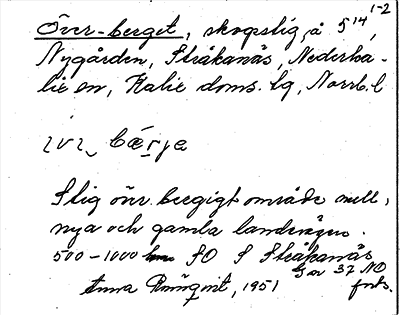 1-2
Över-berget, skogslig, å 5 14,
Nygården, Stråkanäs, Nederka-
lix sn, Kalix doms. lg, Norrb. l
bæ̀rjə
Stig över bergigt område mell.
nya och gamla landsvägen.
500-1000 SO S Stråkanäs
Går 37 NO
Anna 1951